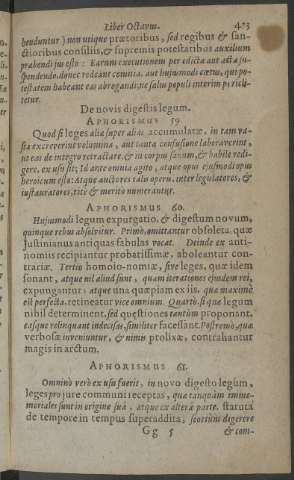 Liber Octavus. 473
henduntur) non utique prætoribus, sed regibus & san-
ctioribus consiliis, & supremis potestatibus auxilium
prabendi jus esto: Earum executionem per edicta aut acta su-
spendendo, donec rodeant comitia, aut hujusmodi cœtus, qui po-
testatem habeant eas abrogandi; ne salus populi interim pericli-
tetur.
De novis digestis legum.
APHORISMUS 59.
Quod si leges aliæ super alias accumulatæ, in tam va-
sta excreverint volumina, aut tanta confusione laboraverint,
ut eas de integro retractare, & in corpus sanum, & habile redi-
gere, ex usu sit; id ante omnia agito, atque opus ejusmodi opus
heroicum esto: Atque auctores talis operis, inter legislatores, &
instauratores, ritè & meritò numerantur.
APHORISMUS 60.
Hujusmodi legum expurgatio, & digestum novum,
quinque rebus absolvitur. Primò, omittantur obsoleta, quæ
Justinianus antiquas fabulas vocat. Deinde ex anti-
nomiis recipiantur probatissimæ, aboleantur con-
trariæ. Tertiò homoio-nomiæ, sive leges, quæ idem
sonant, atque nil aliud sunt, quam iterationes ejusdem rei,
expungantur: atque una quæpiam ex iis, quæ maximè
est perfecta, retineatur vice omnium. Quartò, si quæ legum
nihil determinent, sed quæstiones tantùm proponant,
easque relinquant indecisas, similiter facessant. Postremò, quæ
verbosæ inveniuntur, & nimis prolixæ, contrahantur
magis in arctum.
APHORISMUS 61.
Omninò verò ex usu fuerit, in novo digesto legum,
leges pro jure communi receptas, quæ tanquàm imme-
moriales sunt in origine suâ, atque ex alterâ parte, statuta
de tempore in tempus superaddita; seorsim digerere
Gg 5 & com-